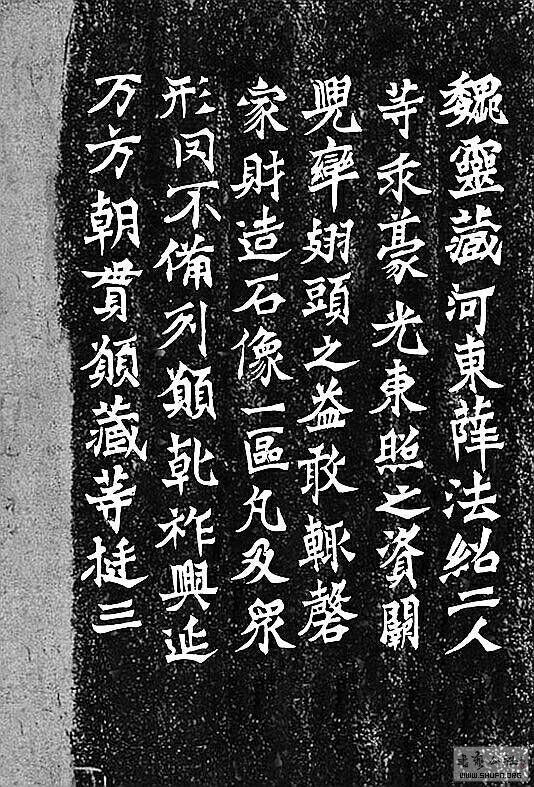 魏靈藏河東薛法紹二人
等求豪光東照之資闕
兜率翅頭之益敢輒罄
家財造石像一區凡及眾
形罔不備列願乾祚興延
万方朝貫願藏等挺三
WWW.SHUFA.ORG